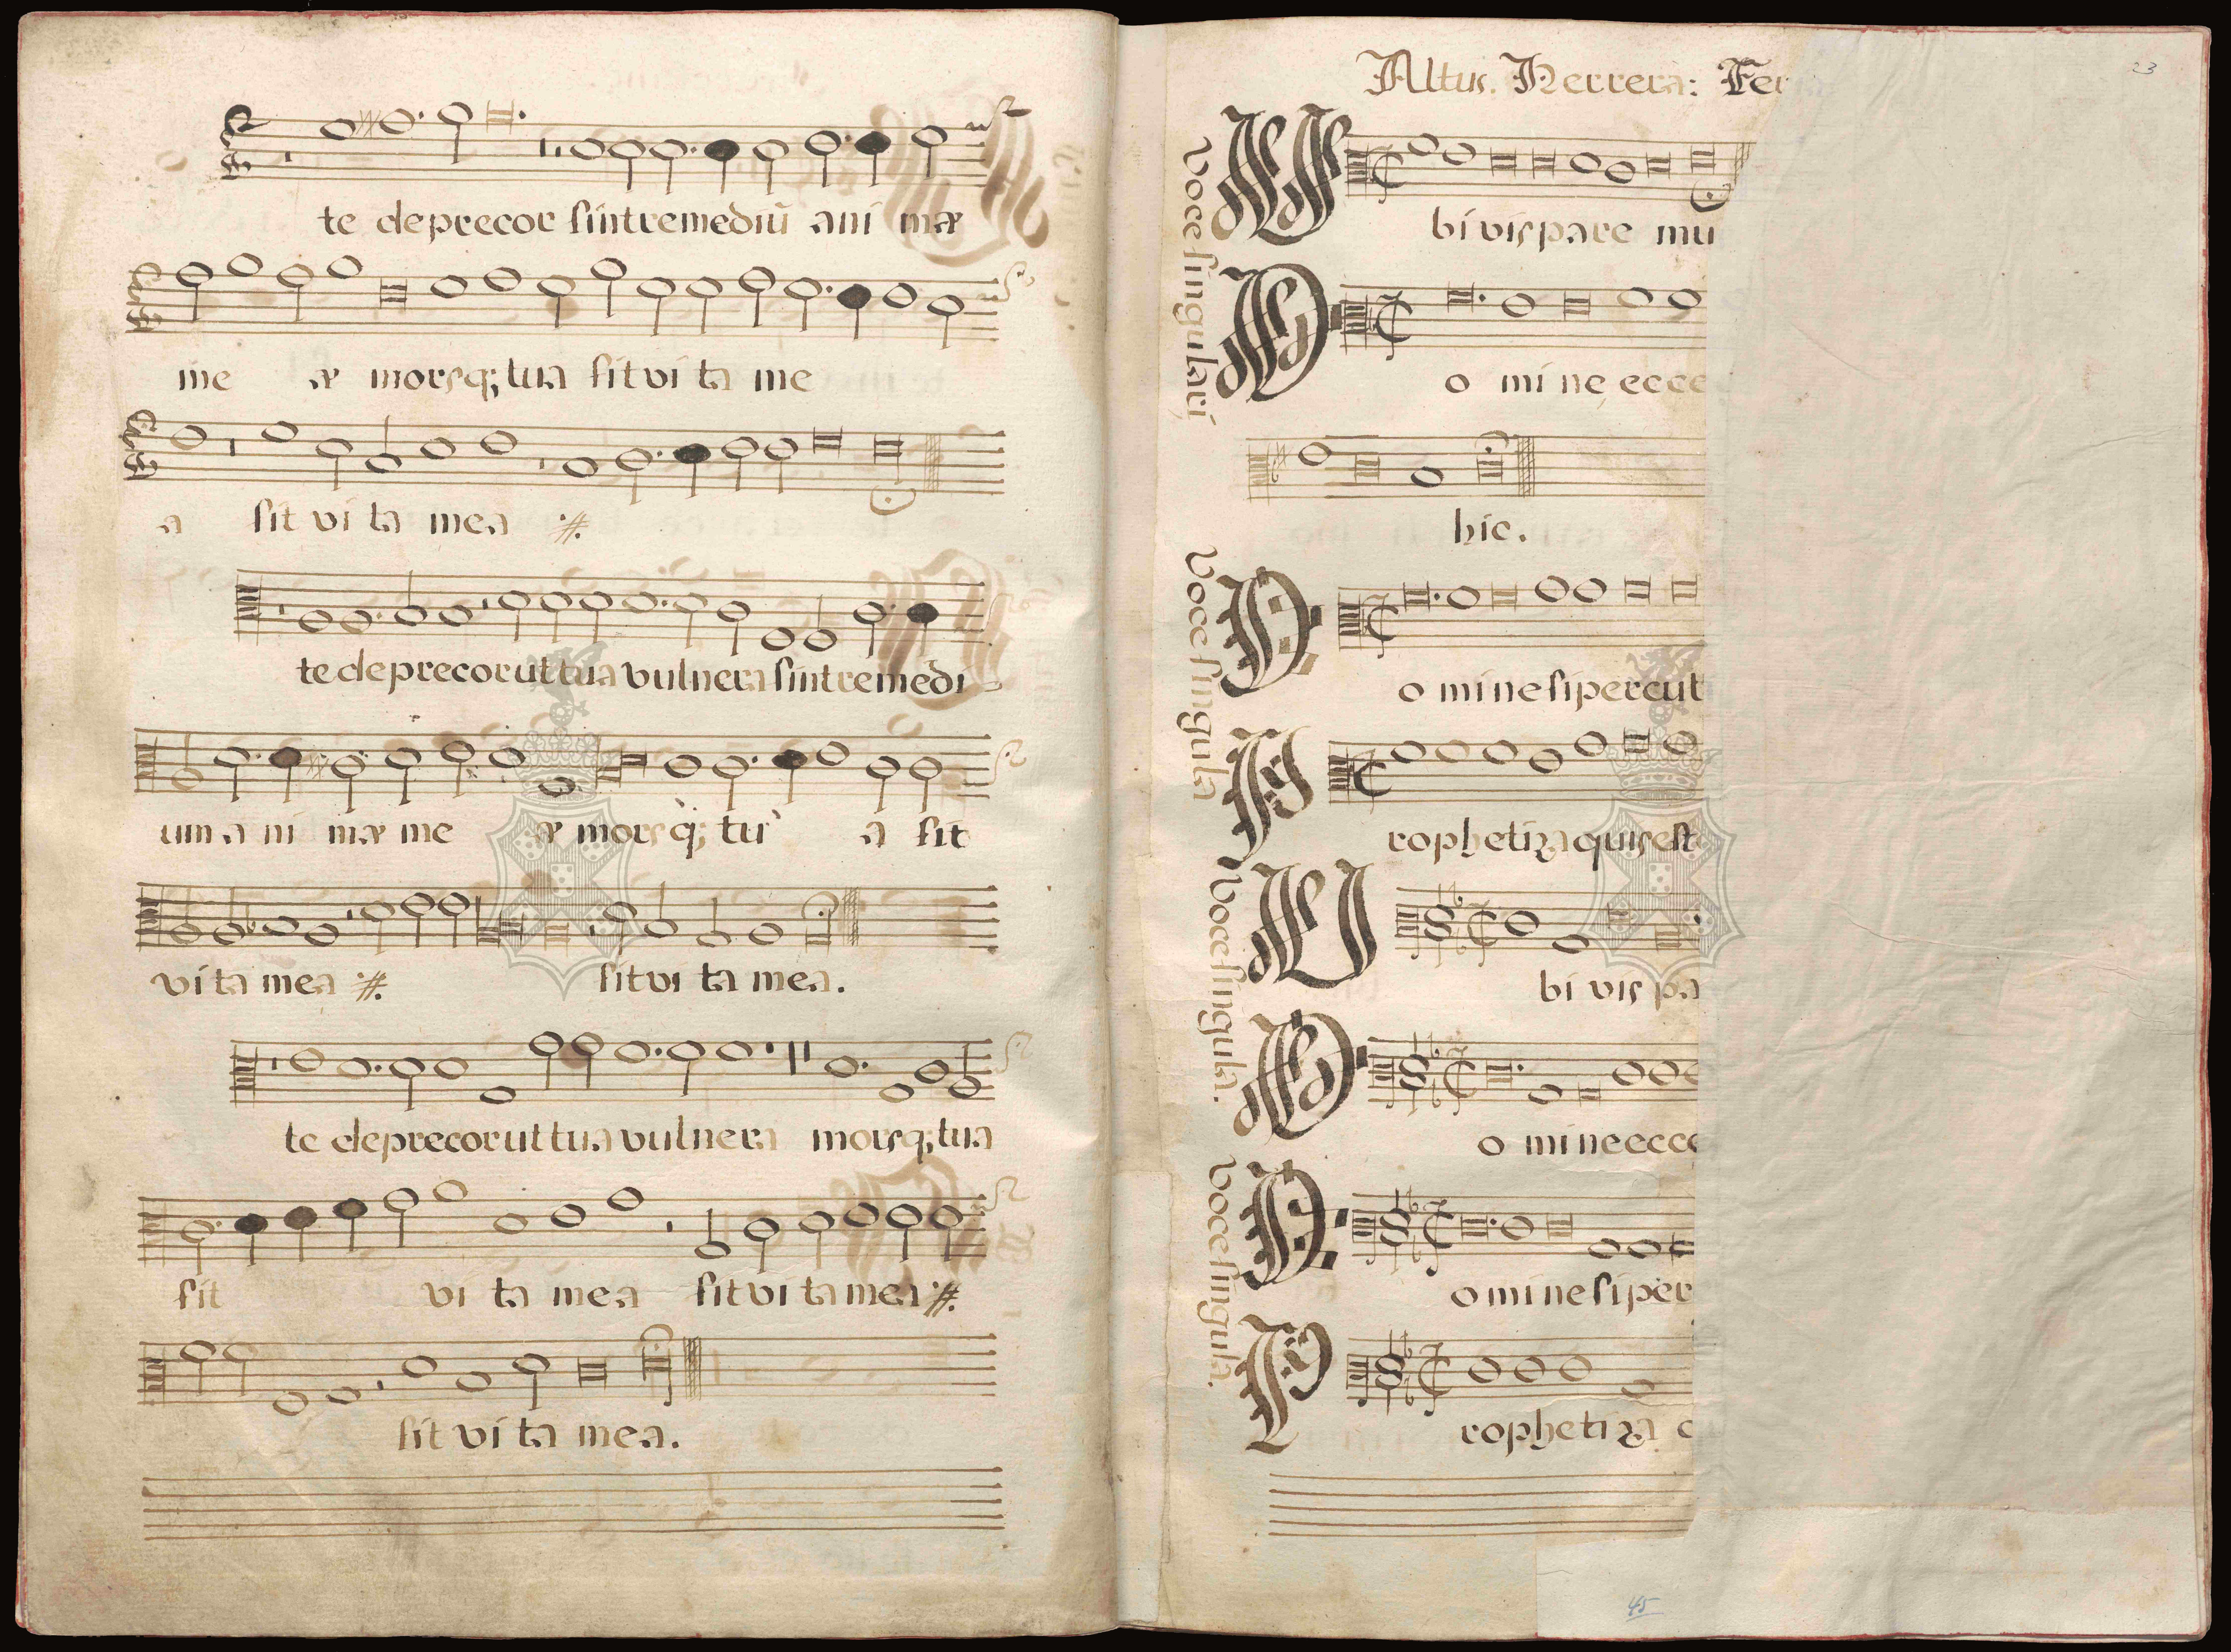 te deprecor sint remediũ ani mæ
me æ morsq; tua sit vi ta me
a sit vi ta mea :#.
te deprecor ut tua vulnera sint remedi
um a ni mæ me æ mors q; tu a sit
vita mea :#. sit vi ta mea.
te deprecor ut tua vulnera morsq; tua
sit vi ta mea sit vi ta mea :#.
sit vi ta mea.
Altus. Herrera: Fer
23
Voce singulari
V bi vis pare mu
D o mi ne ecce
hic.
Voce singula
D o mi ne si percut
P rophetiza quis est
Voce singula.
U bi vis pa
D o mi ne ecce
Voce singula.
D o mi ne si per
P rophetiza
45